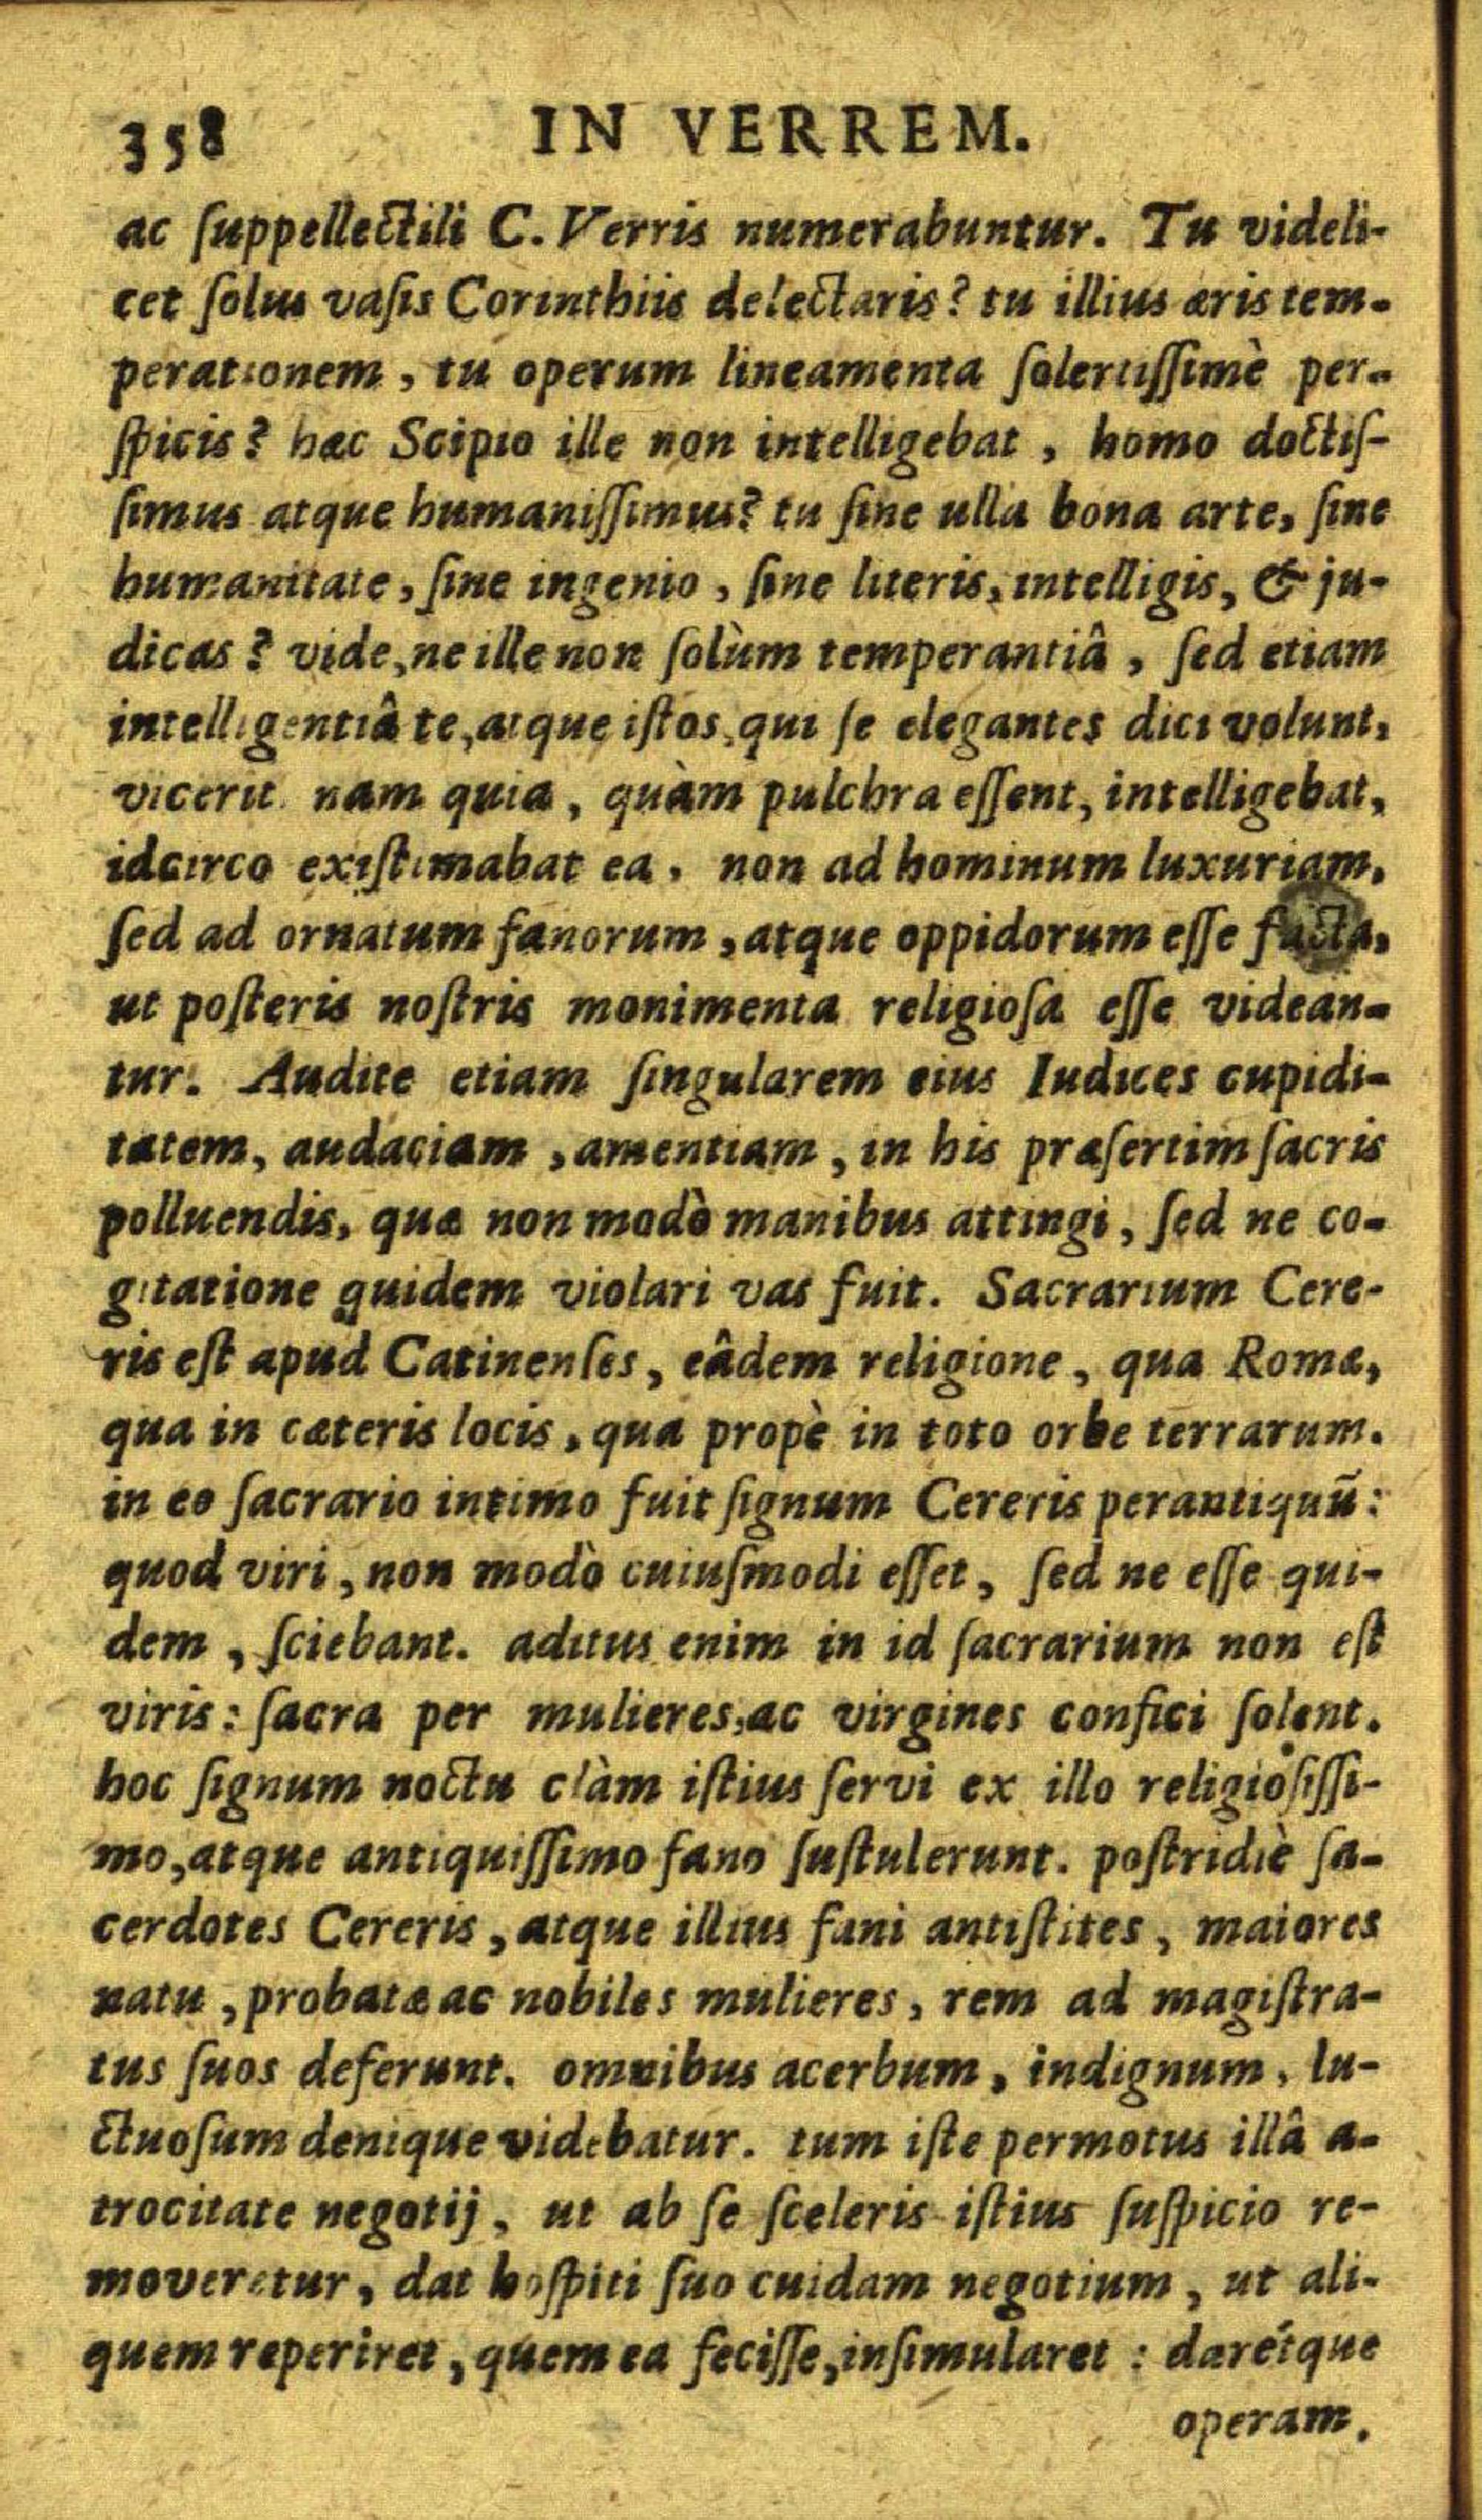 358 IN VERREM.
ac ſuppellectili C. Verris numerabuntur. Tu videli-
cet ſolus vaſis Corinthiis delectaris? tu illius æris tem-
perationem, tu operum lineamenta ſolertiſſimè per-
ſpicis? hæc Scipio ille non intelligebat, homo doctiſ-
ſimus atque humaniſſimus? tu ſine ulla bona arte, ſine
humanitate, ſine ingenio, ſine literis, intelligis, & ju-
dicas? vide, ne ille non ſolùm temperantiâ, ſed etiam
intelligentiâ te, atque iſtos, qui ſe elegantes dici volunt,
vicerit. nam quia, quàm pulchra eſſent, intelligebat,
idcirco exiſtimabat ea, non ad hominum luxuriam,
ſed ad ornatum fanorum, atque oppidorum eſſe facta,
ut poſteris noſtris monimenta religioſa eſſe videan-
tur. Audite etiam ſingularem eius Iudices cupidi-
tatem, audaciam, amentiam, in his præſertim ſacris
polluendis, quæ non modò manibus attingi, ſed ne co-
gitatione quidem violari vas fuit. Sacrarium Cere-
ris eſt apud Catinenſes, eâdem religione, qua Romæ,
qua in cæteris locis, qua propè in toto orbe terrarum.
in eo ſacrario intimo fuit ſignum Cereris perantiquũ:
quod viri, non modò cuiuſmodi eſſet, ſed ne eſſe qui-
dem, ſciebant. aditus enim in id ſacrarium non eſt
viris: ſacra per mulieres, ac virgines confici ſolent.
hoc ſignum noctu clàm iſtius ſervi ex illo religioſiſſi-
mo, atque antiquiſſimo fano ſuſtulerunt. poſtridiè ſa-
cerdotes Cereris, atque illius fani antiſtites, maiores
natu, probatæ ac nobiles mulieres, rem ad magiſtra-
tus ſuos deferunt. omnibus acerbum, indignum, lu-
ctuoſum denique videbatur. tum iſte permotus illâ a-
trocitate negotij, ut ab ſe ſceleris iſtius ſuſpicio re-
moveretur, dat hoſpiti ſuo cuidam negotium, ut ali-
quem reperiret, quem ea feciſſe, inſimularet: darétque
operam,